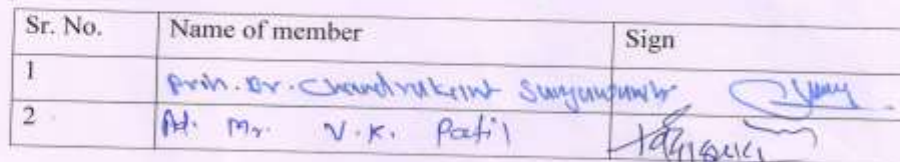 Sr. No. Name of member Sign
1 Prin. Dr. Chandrakant
2 Ad. Mr. V.K. Patil